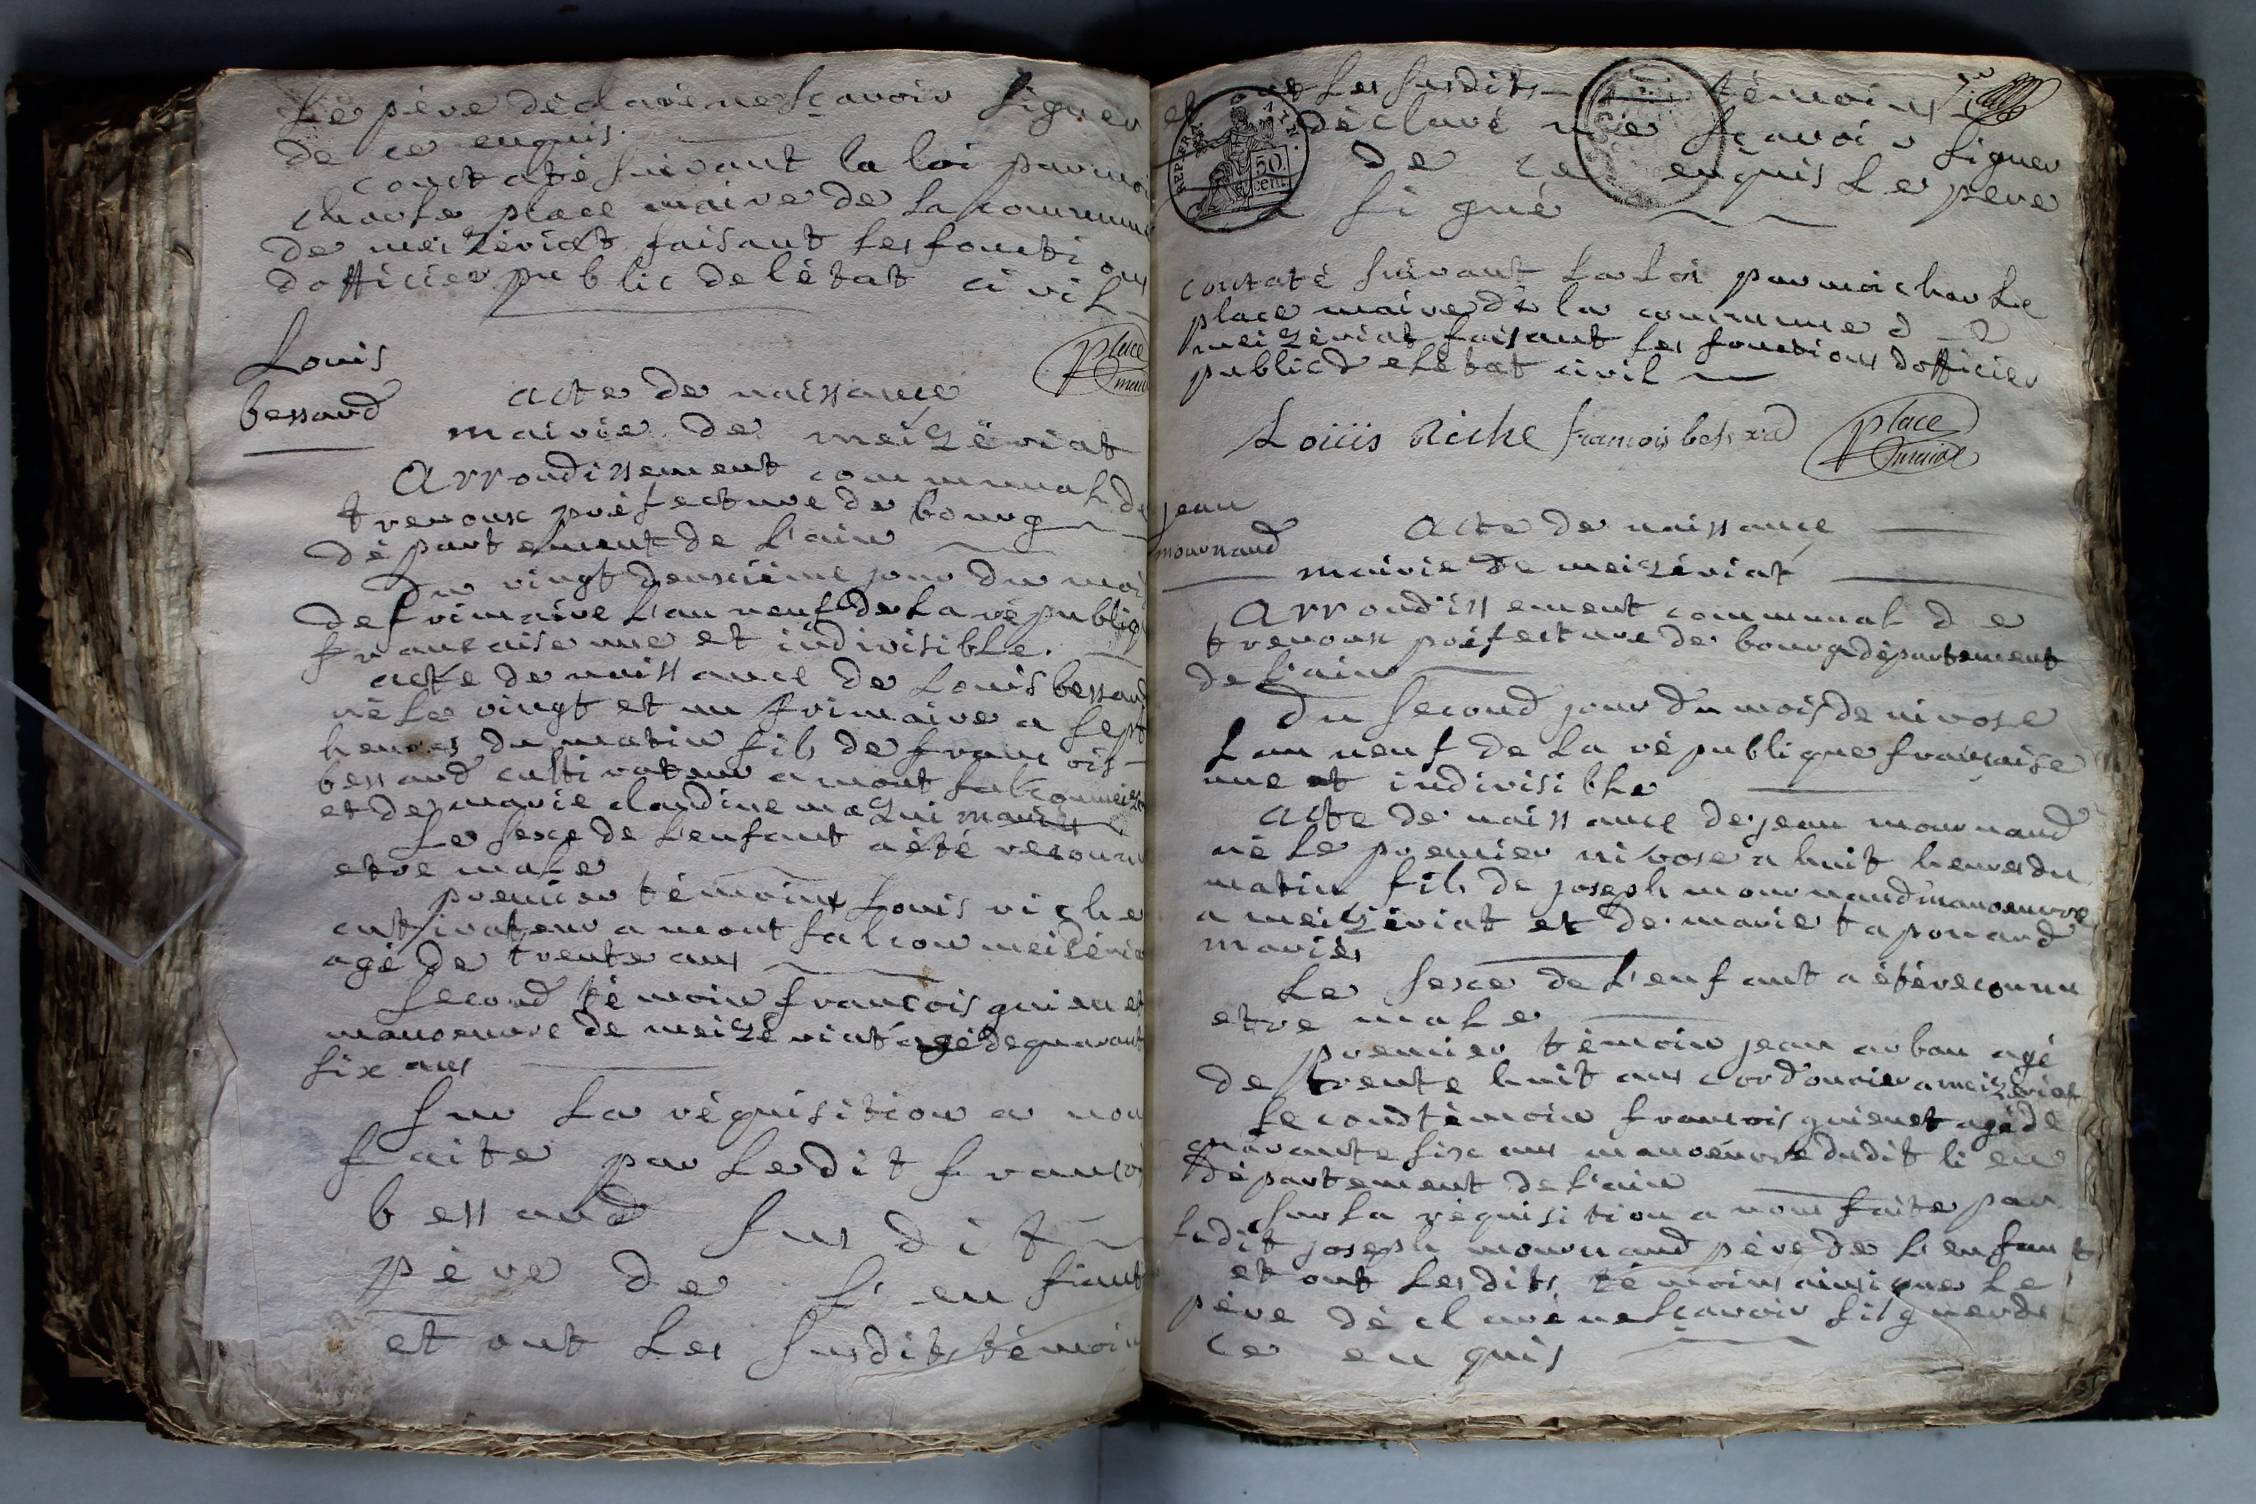 Le père déclaré ne sçavoir signer
de ce enquis.
constaté suivant la loi par moi
charle place maire de la commune
de meizériat faisant les foncti ons
dofficier public de l'état civil
place
maire
Louis
bessard
acte de naissance
mairie de meizériat
Arrondissement communal de
trevoux préfecture de bourg
département de l'ain
Du vingt deuxième jour du mois
de frimaire l'an neuf de la républiq
francaise une et indivisible.
acte de naissance de Louis bessard
né le vingt et un frimaire a sept
heures du matin fils de francois
bessard cultivateur a mont falcon meizé
et de marie claudine mazui mariés
Le sexe de l'enfant a été reconnu
etre male
premier témoins Louis riche
cultivateur a mont falcon meizéria
agé de trente ans
second témoin francois guienet
manoeuvre de meizériat agé de quarant
six ans
sur la réquisition a nou
faite par ledit francoi
bessard susdit
père de l'enfant
et ont les susdits témoin
et ont les susdits témoins
déclaré ne sçavoir signer
de ce enquis le père
a signé
REP. FRA.
AIN.
50
cent.
contaté suivant la loi par moi charle
place maire de la commune d e
meizériat faisant les fonctions dofficier
public de letat civil
Loüis Riche francois bessard place
maire
jean
mournaud
Acte de naissance
mairie de meizériat
Arrondissement communal d e
trevoux préfecture de bourg département
de l'ain
Du second jour du mois de nivose
L an neuf de la république francaise
une et indivisible
acte de naissance de jean mournaud
né le premier nivose a huit heures du
matin fils de joseph mournaud manoeuvre
a meizériat et de marie taponard
mariés
Le sexe de l'enfant a été reconnu
etre male
premier témoin jean arban agé
de trente huit ans cordonnier a meizériat
second témoin francois guienet agé de
quarante six ans manoeuvre dudit lieu
département de l'ain
sur la réquisition a nous faite par
ledit joseph mournaud père de l'enfant
et ont lesdits témoins ainsi que le
père déclaré ne sçavoir signer de
ce enquis